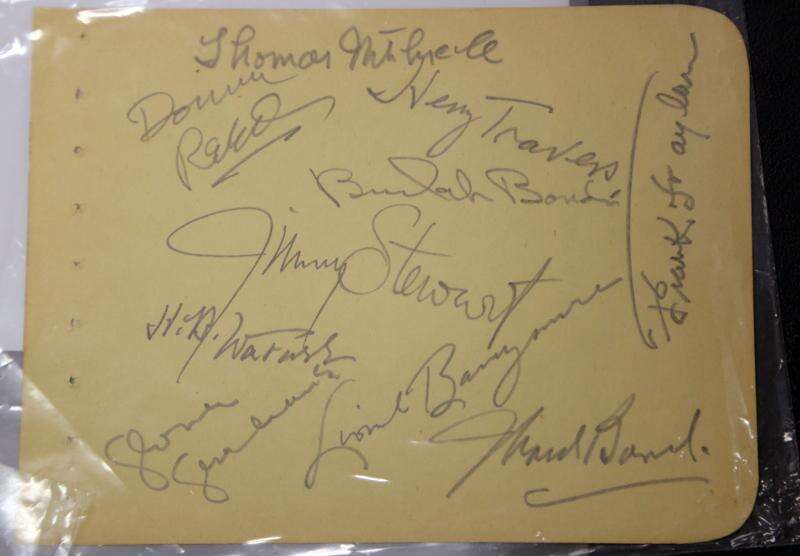 Thomas Mitchell
Donna
Reed
Henry Travers
Beulah Bondi
Frank Faylen
Jimmy Stewart
H.B. Warner
Gloria
Grahame
Lionel Barrymore
Ward Bond.